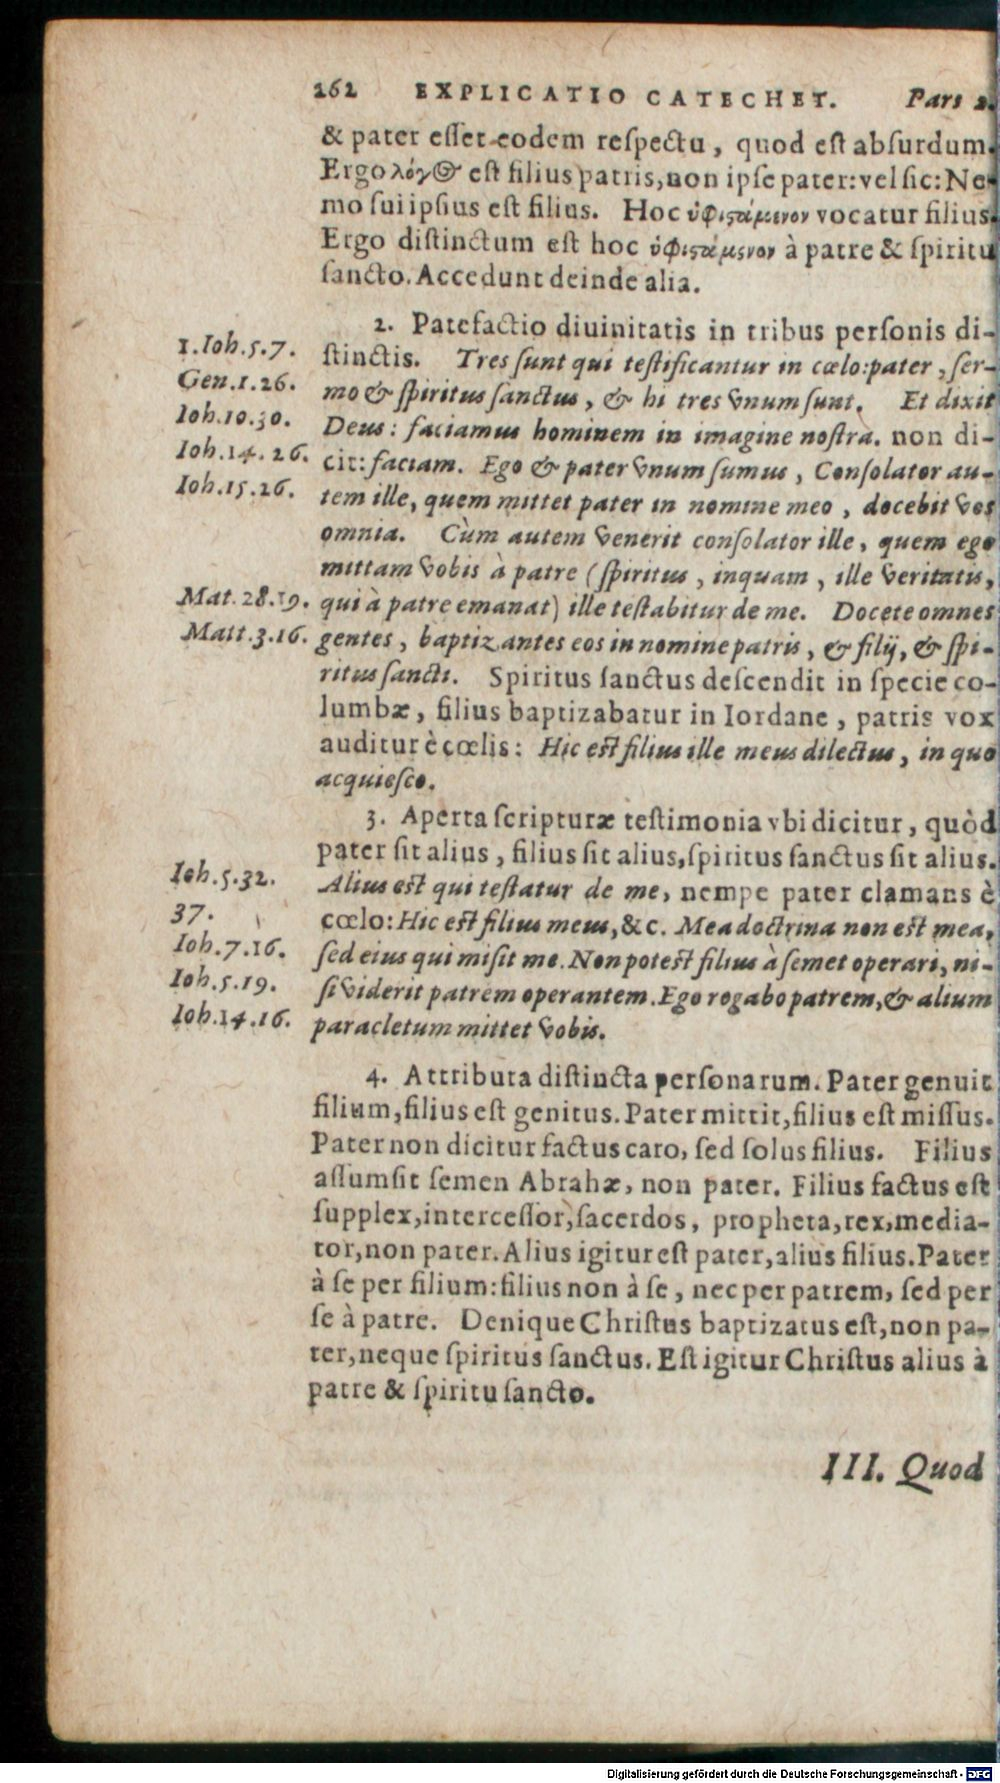 262 EXPLICATIO CATECHET. Pars 2.
& pater eſſet eodem reſpectu, quod eſt abſurdum.
Ergo λόγος eſt filius patris, non ipſe pater: vel ſic: Ne-
mo ſui ipſius eſt filius. Hoc ὑφιϛάμενον vocatur filius.
Ergo diſtinctum eſt hoc ὑφιϛάμενον à patre & ſpiritu
ſancto. Accedunt deinde alia.
2. Patefactio diuinitatis in tribus perſonis di-
1.Ioh.5.7.
ſtinctis. Tres ſunt qui teſtificantur in cœlo: pater, ſer-
Gen.1.26.
mo & ſpiritus ſanctus, & hi tres vnum ſunt. Et dixit
Ioh.10.30.
Deus: faciamus hominem in imagine noſtra. non di-
Ioh.14.26.
cit: faciam. Ego & pater vnum ſumus, Conſolator au-
Ioh.15.26.
tem ille, quem mittet pater in nomine meo, docebit vos
omnia. Cùm autem venerit conſolator ille, quem ego
mittam vobis à patre (ſpiritus, inquam, ille veritatis,
Mat.28.19.
qui à patre emanat) ille teſtabitur de me. Docete omnes
Matt.3.16.
gentes, baptizantes eos in nomine patris, & filij, & ſpi-
ritus ſancti. Spiritus ſanctus deſcendit in ſpecie co-
lumbæ, filius baptizabatur in Iordane, patris vox
auditur è cœlis: Hic eſt filius ille meus dilectus, in quo
acquieſco.
3. Aperta ſcripturæ teſtimonia vbi dicitur, quòd
pater ſit alius, filius ſit alius, ſpiritus ſanctus ſit alius.
Ioh.5.32.
Alius eſt qui teſtatur de me, nempe pater clamans è
37.
cœlo: Hic eſt filius meus, &c. Mea doctrina non eſt mea,
Ioh.7.16.
ſed eius qui miſit me. Non poteſt filius à ſemet operari, ni-
Ioh.5.19.
ſi viderit patrem operantem. Ego rogabo patrem, & alium
Ioh.14.16.
paracletum mittet vobis.
4. Attributa diſtincta perſonarum. Pater genuit
filium, filius eſt genitus. Pater mittit, filius eſt miſſus.
Pater non dicitur factus caro, ſed ſolus filius. Filius
aſſumſit ſemen Abrahæ, non pater. Filius factus eſt
ſupplex, interceſſor, ſacerdos, propheta, rex, media-
tor, non pater. Alius igitur eſt pater, alius filius. Pater
à ſe per filium: filius non à ſe, nec per patrem, ſed per
ſe à patre. Denique Chriſtus baptizatus eſt, non pa-
ter, neque ſpiritus ſanctus. Eſt igitur Chriſtus alius à
patre & ſpiritu ſancto.
III. Quod
Digitalisierung gefördert durch die Deutsche Forschungsgemeinschaft - DFG